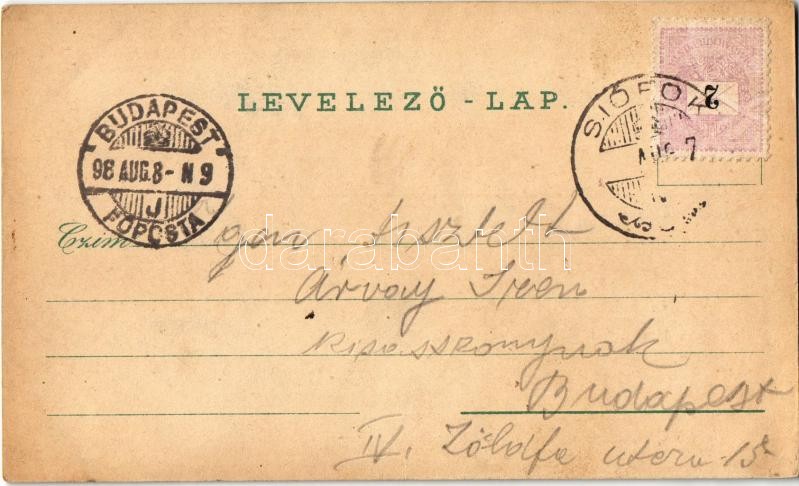 LEVELEZŐ - LAP.
BUDAPEST
98 AUG. 8 - N 9
J
FŐPOSTA
SIÓFOK
AUG 7
2
Czim
darabanth
Árvay Iren
kisasszonynak
Budapest
IV. Zöldfa utcza 15